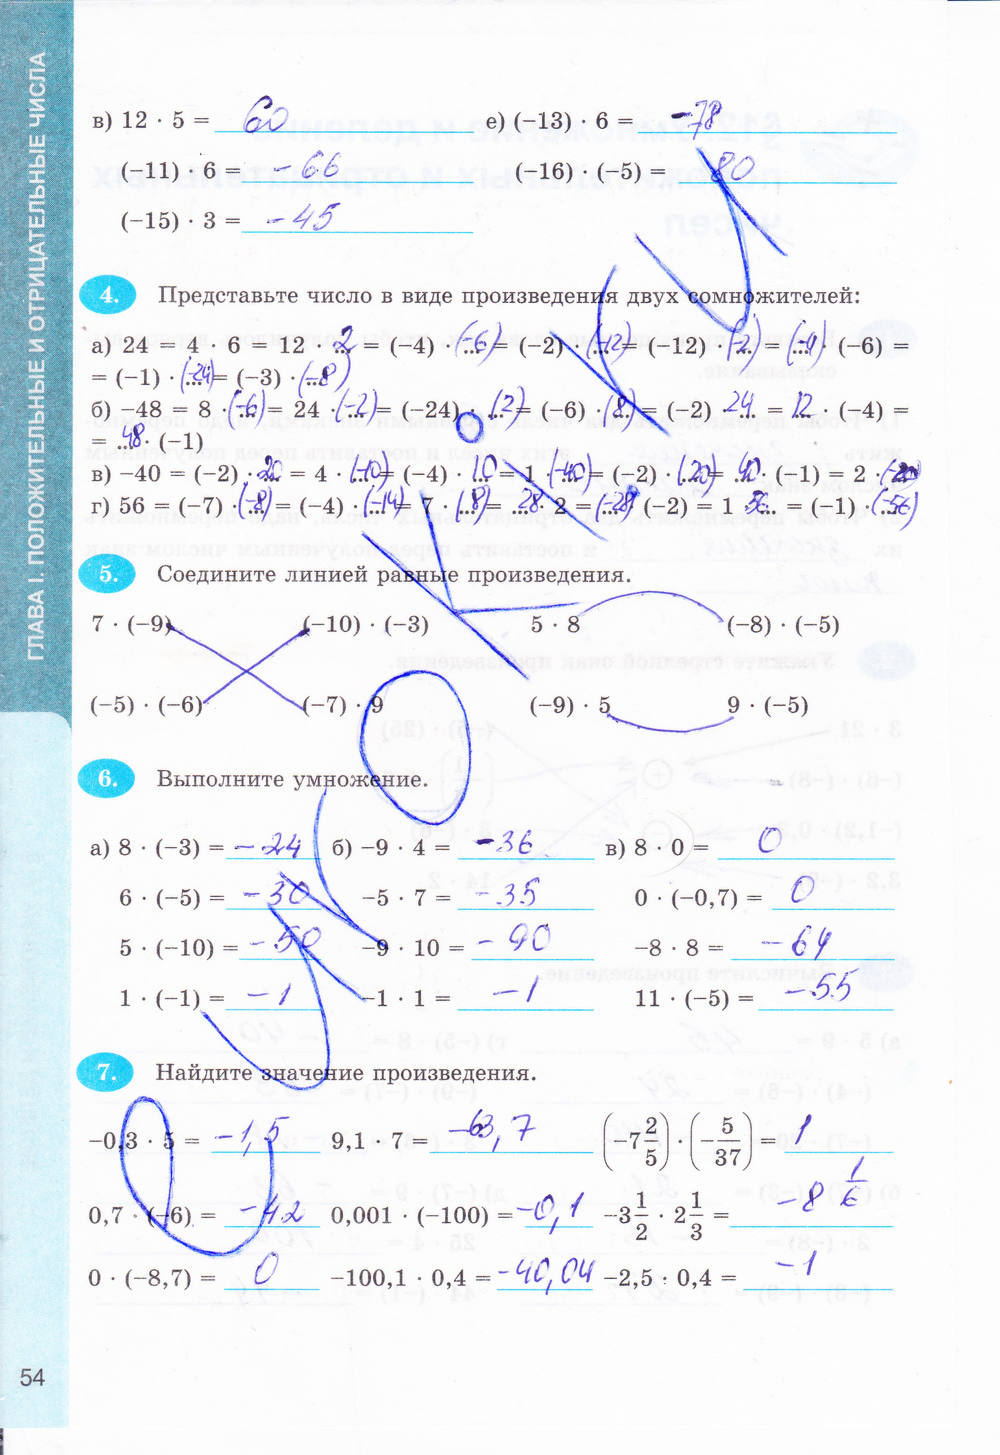 ГЛАВА I. ПОЛОЖИТЕЛЬНЫЕ И ОТРИЦАТЕЛЬНЫЕ ЧИСЛА
в) 12 · 5 = 60 е) (−13) · 6 = −78
(−11) · 6 = −66 (−16) · (−5) = 80
(−15) · 3 = −45
4. Представьте число в виде произведения двух сомножителей:
а) 24 = 4 · 6 = 12 · 2 = (−4) · (−6) = (−2) · (−12) = (−12) · (−2) = (−4) · (−6) =
= (−1) · (−24) = (−3) · (−8)
б) −48 = 8 · (−6) = 24 · (−2) = (−24) · (2) = (−6) · (8) = (−2) · 24 = 12 · (−4) =
= 48 · (−1)
в) −40 = (−2) · 20 = 4 · (−10) = (−4) · 10 = 1 · (−40) = (−2) · (20) = 40 · (−1) = 2 · (−20)
г) 56 = (−7) · (−8) = (−4) · (−14) = 7 · (8) = 28 · 2 = (−28) · (−2) = 1 · 56 = (−1) · (−56)
5. Соедините линией равные произведения.
7 · (−9) (−10) · (−3) 5 · 8 (−8) · (−5)
(−5) · (−6) (−7) · 9 (−9) · 5 9 · (−5)
6. Выполните умножение.
а) 8 · (−3) = −24 б) −9 · 4 = −36 в) 8 · 0 = 0
6 · (−5) = −30 −5 · 7 = −35 0 · (−0,7) = 0
5 · (−10) = −50 −9 · 10 = −90 −8 · 8 = −64
1 · (−1) = −1 −1 · 1 = −1 11 · (−5) = −55
7. Найдите значение произведения.
−0,3 · 5 = −1,5 9,1 · 7 = −63,7 (−7 2/5) · (−5/37) = 1
0,7 · (−6) = −42 0,001 · (−100) = −0,1 −3 1/2 · 2 1/3 = −8 1/6
0 · (−8,7) = 0 −100,1 · 0,4 = −40,04 −2,5 · 0,4 = −1
54